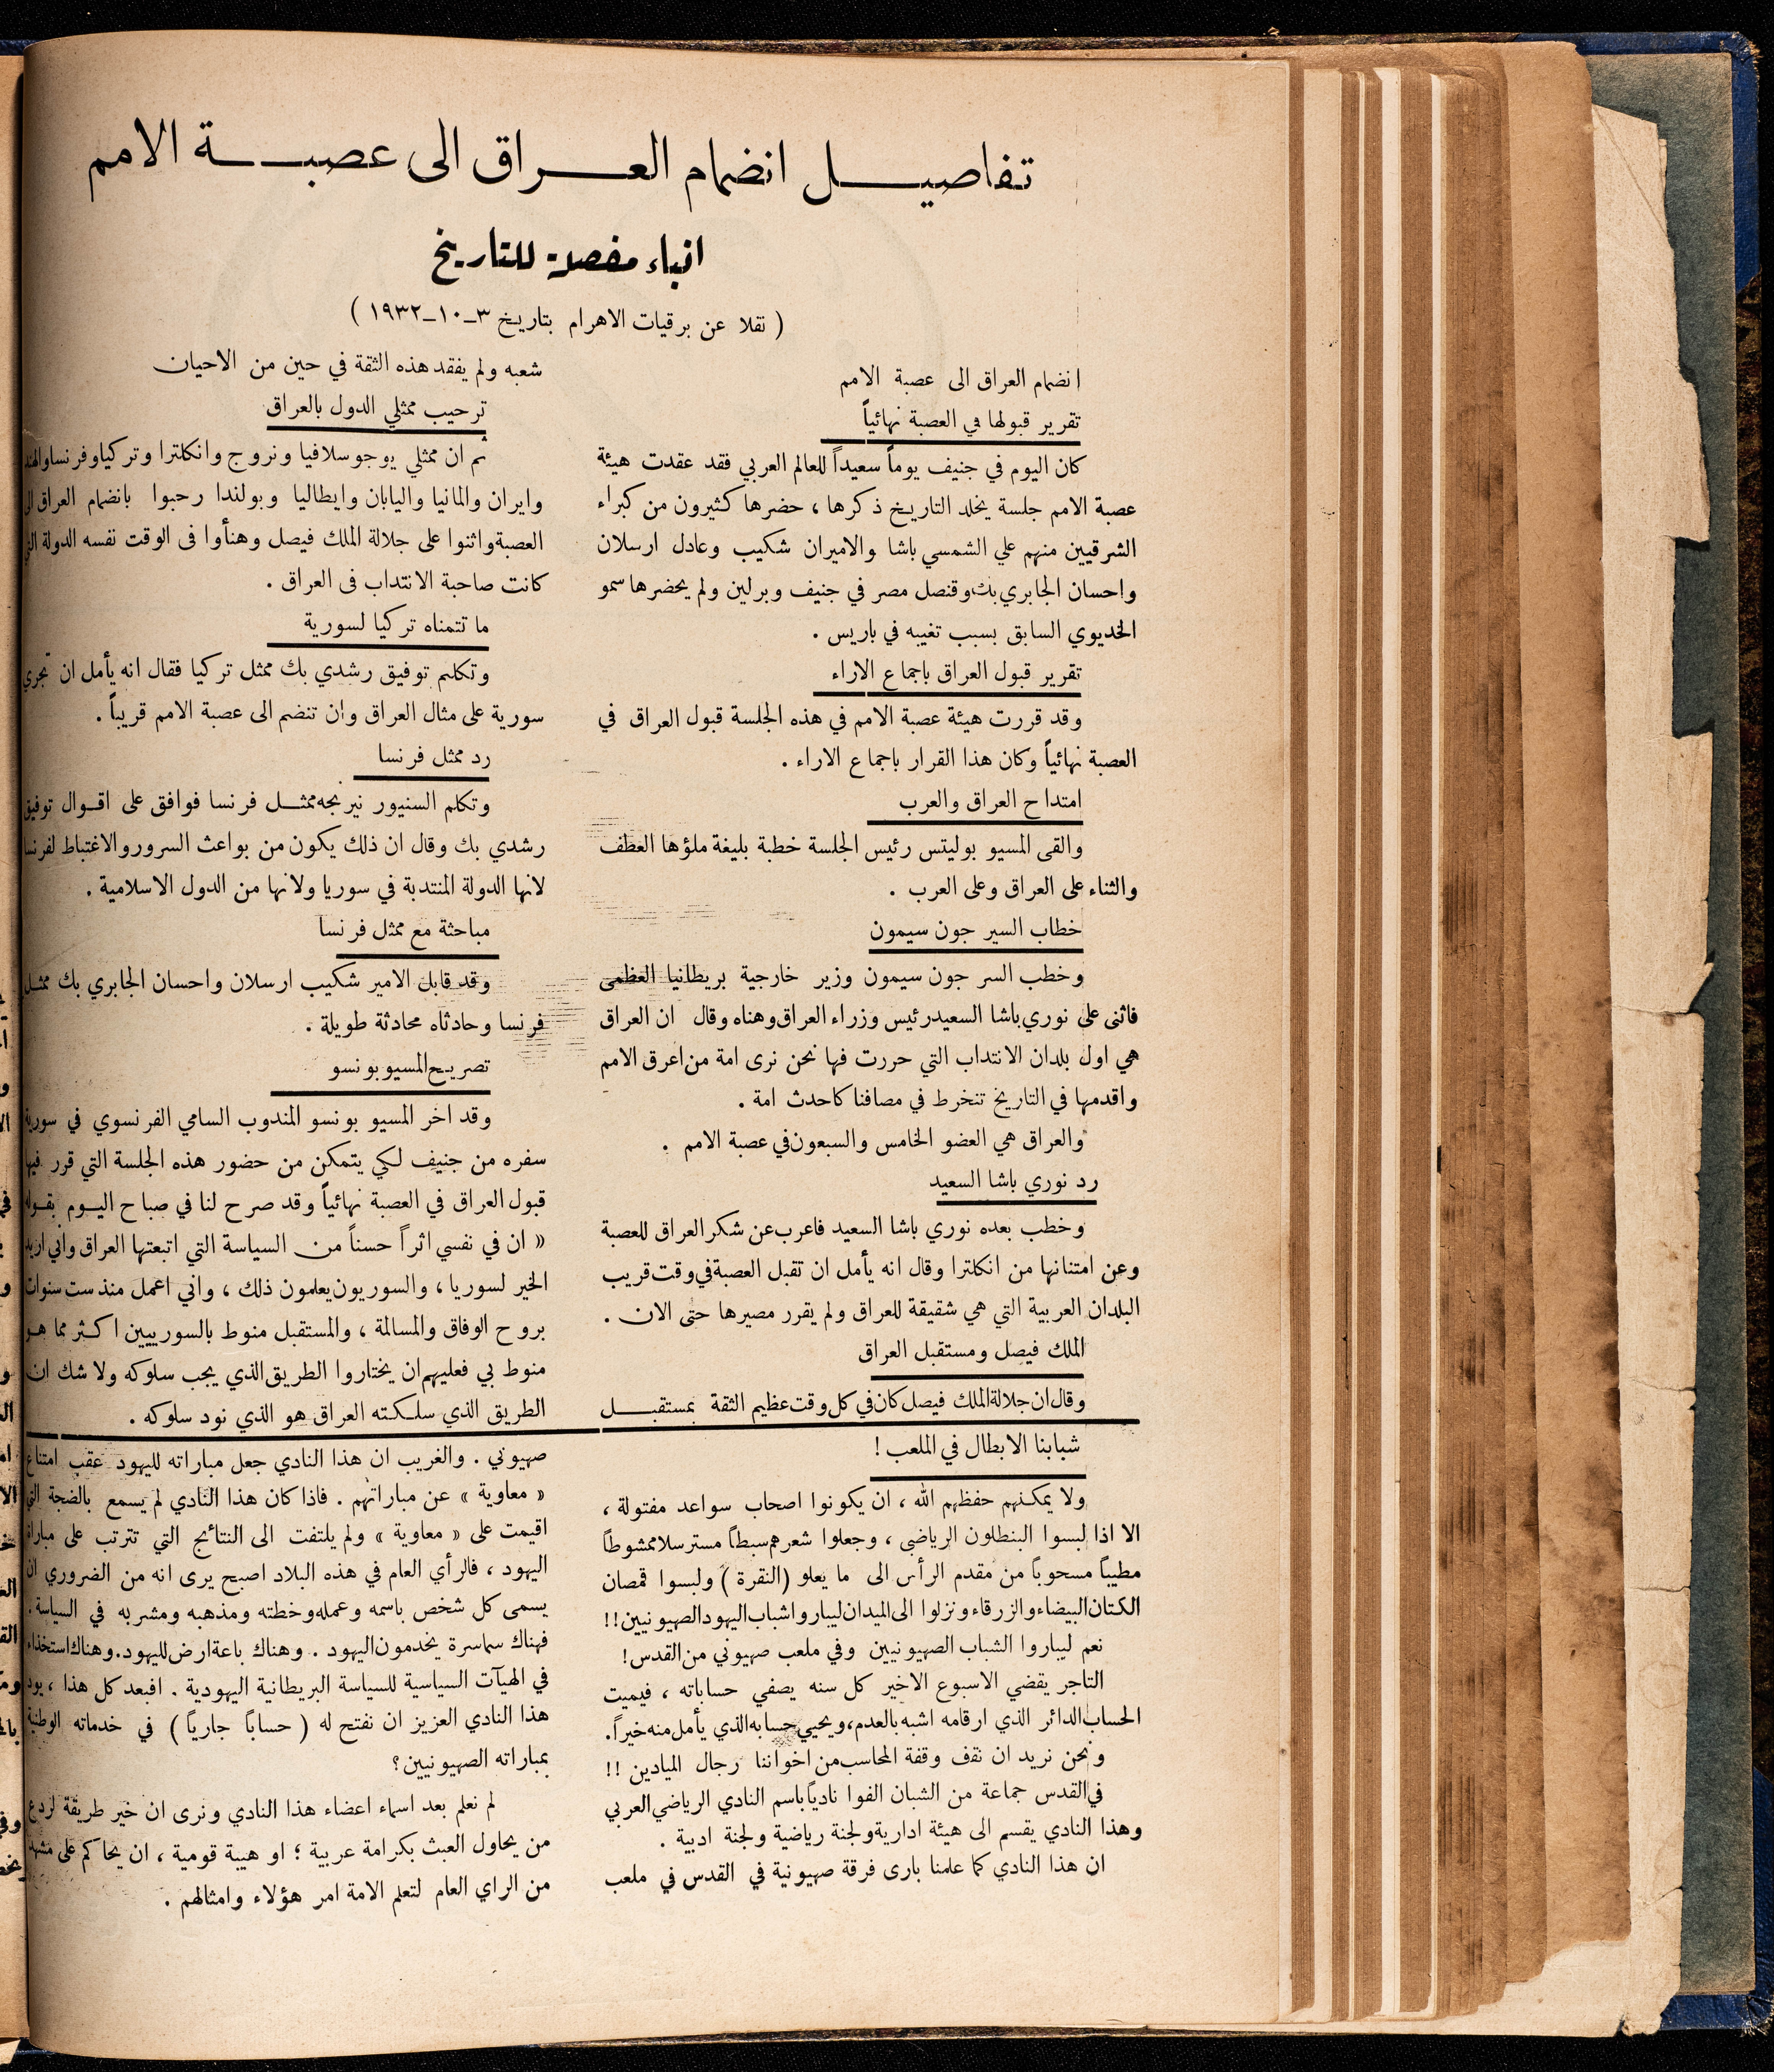 تفاصيل انضمام العراق الى عصبة الامم
انباء مفصلة للتاريخ
( نقلا عن برقيات الاهرام بتاريخ ٣-١٠-١٩٣٢ )
انضمام العراق الى عصبة الامم
تقرير قبولها في العصبة نهائياً
كان اليوم في جنيف يوماً سعيداً للعالم العربي فقد عقدت هيئة
عصبة الامم جلسة يخلد التاريخ ذكرها ، حضرها كثيرون من كبراء
الشرقيين منهم علي الشمسي باشا والاميران شكيب وعادل ارسلان
واحسان الجابري بك وقنصل مصر في جنيف وبرلين ولم يحضرها سمو
الخديوي السابق بسبب تغيبه في باريس .
تقرير قبول العراق باجماع الاراء
وقد قررت هيئة عصبة الامم في هذه الجلسة قبول العراق في
العصبة نهائياً وكان هذا القرار باجماع الاراء .
امتداح العراق والعرب
والقى المسيو بوليتس رئيس الجلسة خطبة بليغة ملؤها العطف
والثناء على العراق وعلى العرب .
خطاب السير جون سيمون
وخطب السر جون سيمون وزير خارجية بريطانيا العظمى
فاثنى على نوري باشا السعيد رئيس وزراء العراق وهناه وقال ان العراق
هي اول بلدان الانتداب التي حررت فها نحن نرى امة من اعرق الامم
واقدمها في التاريخ تنخرط في مصافنا كاحدث امة .
والعراق هي العضو الخامس والسبعون في عصبة الامم .
رد نوري باشا السعيد
وخطب بعده نوري باشا السعيد فاعرب عن شكر العراق للعصبة
وعن امتنانها من انكلترا وقال انه يأمل ان تقبل العصبة في وقت قريب
البلدان العربية التي هي شقيقة للعراق ولم يقرر مصيرها حتى الان .
الملك فيصل ومستقبل العراق
وقال ان جلالة الملك فيصل كان في كل وقت عظيم الثقة بمستقبل
شعبه ولم يفقد هذه الثقة في حين من الاحيان
ترحيب ممثلي الدول بالعراق
ثم ان ممثلي يوجوسلافيا ونروج وانكلترا وتركيا وفرنسا والهند
وايران والمانيا واليابان وايطاليا وبولندا رحبوا بانضمام العراق الى
العصبة واثنوا على جلالة الملك فيصل وهنأوا فى الوقت نفسه الدولة التي
كانت صاحبة الانتداب فى العراق .
ما تتمناه تركيا لسورية
وتكلم توفيق رشدي بك ممثل تركيا فقال انه يأمل ان تجري
سورية على مثال العراق وان تنضم الى عصبة الامم قريباً .
رد ممثل فرنسا
وتكلم السنيور نيرنجه ممثل فرنسا فوافق على اقوال توفيق
رشدي بك وقال ان ذلك يكون من بواعث السرور والاغتباط لفرنسا
لانها الدولة المنتدبة في سوريا ولانها من الدول الاسلامية .
مباحثة مع ممثل فرنسا
وقد قابل الامير شكيب ارسلان واحسان الجابري بك ممثل
فرنسا وحادثاه محادثة طويلة .
تصريح المسيو بونسو
وقد اخر المسيو بونسو المندوب السامي الفرنسوي في سورية
سفره من جنيف لكي يتمكن من حضور هذه الجلسة التي قرر فيها
قبول العراق في العصبة نهائياً وقد صرح لنا في صباح اليوم بقوله
« ان في نفسي اثراً حسناً من السياسة التي اتبعتها العراق واني اريد
الخير لسوريا ، والسوريون يعلمون ذلك ، واني اعمل منذ ست سنوات
بروح الوفاق والمسالمة ، والمستقبل منوط بالسوريين اكثر مما هو
منوط بي فعليهم ان يختاروا الطريق الذي يجب سلوكه ولا شك ان
الطريق الذي سلكته العراق هو الذي نود سلوكه .
شبابنا الابطال في الملعب !
ولا يمكنهم حفظهم الله ، ان يكونوا اصحاب سواعد مفتولة ،
الا اذا لبسوا البنطلون الرياضي ، وجعلوا شعرهم سبطاً مسترسلا ممشوطاً
مطيباً مسحوباً من مقدم الرأس الى ما يعلو (النقرة) ولبسوا قمصان
الكتان البيضاء والزرقاء ونزلوا الى الميدان ليباروا شباب اليهود الصهيونيين !!
نعم ليباروا الشباب الصهيونيين وفي ملعب صهيوني من القدس !
التاجر يقضي الاسبوع الاخير كل سنه يصفي حساباته ، فيميت
الحساب الدائر الذي ارقامه اشبه بالعدم ، ويحيي حسابه الذي يأمل منه خيراً .
ونحن نريد ان نقف وقفة المحاسب من اخواننا رجال الميادين !!
في القدس جماعة من الشبان الفوا نادياً باسم النادي الرياضي العربي
وهذا النادي يقسم الى هيئة ادارية ولجنة رياضية ولجنة ادبية .
ان هذا النادي كما علمنا بارى فرقة صهيونية في القدس في ملعب
صهيوني . والغريب ان هذا النادي جعل مباراته لليهود عقب امتناع
« معاوية » عن مباراتهم . فاذا كان هذا النادي لم يسمع بالضجة التي
اقيمت على « معاوية » ولم يلتفت الى النتائج التي تترتب على مباراة
اليهود ، فالرأي العام في هذه البلاد اصبح يرى انه من الضروري ان
يسمى كل شخص باسمه وعمله وخطته ومذهبه ومشربه في السياسة .
فهناك سماسرة يخدمون اليهود . وهناك باعة ارض لليهود . وهناك استخذاء
في الهيآت السياسية للسياسة البريطانية اليهودية . افبعد كل هذا ، يود
هذا النادي العزيز ان نفتح له ( حساباً جارياً ) في خدماته الوطنية
بمباراته الصهيونيين ؟
لم نعلم بعد اسماء اعضاء هذا النادي ونرى ان خير طريقة لردع
من يحاول العبث بكرامة عربية ؛ او هيبة قومية ، ان يحاكم على مشهد
من الراي العام لتعلم الامة امر هؤلاء وامثالهم .